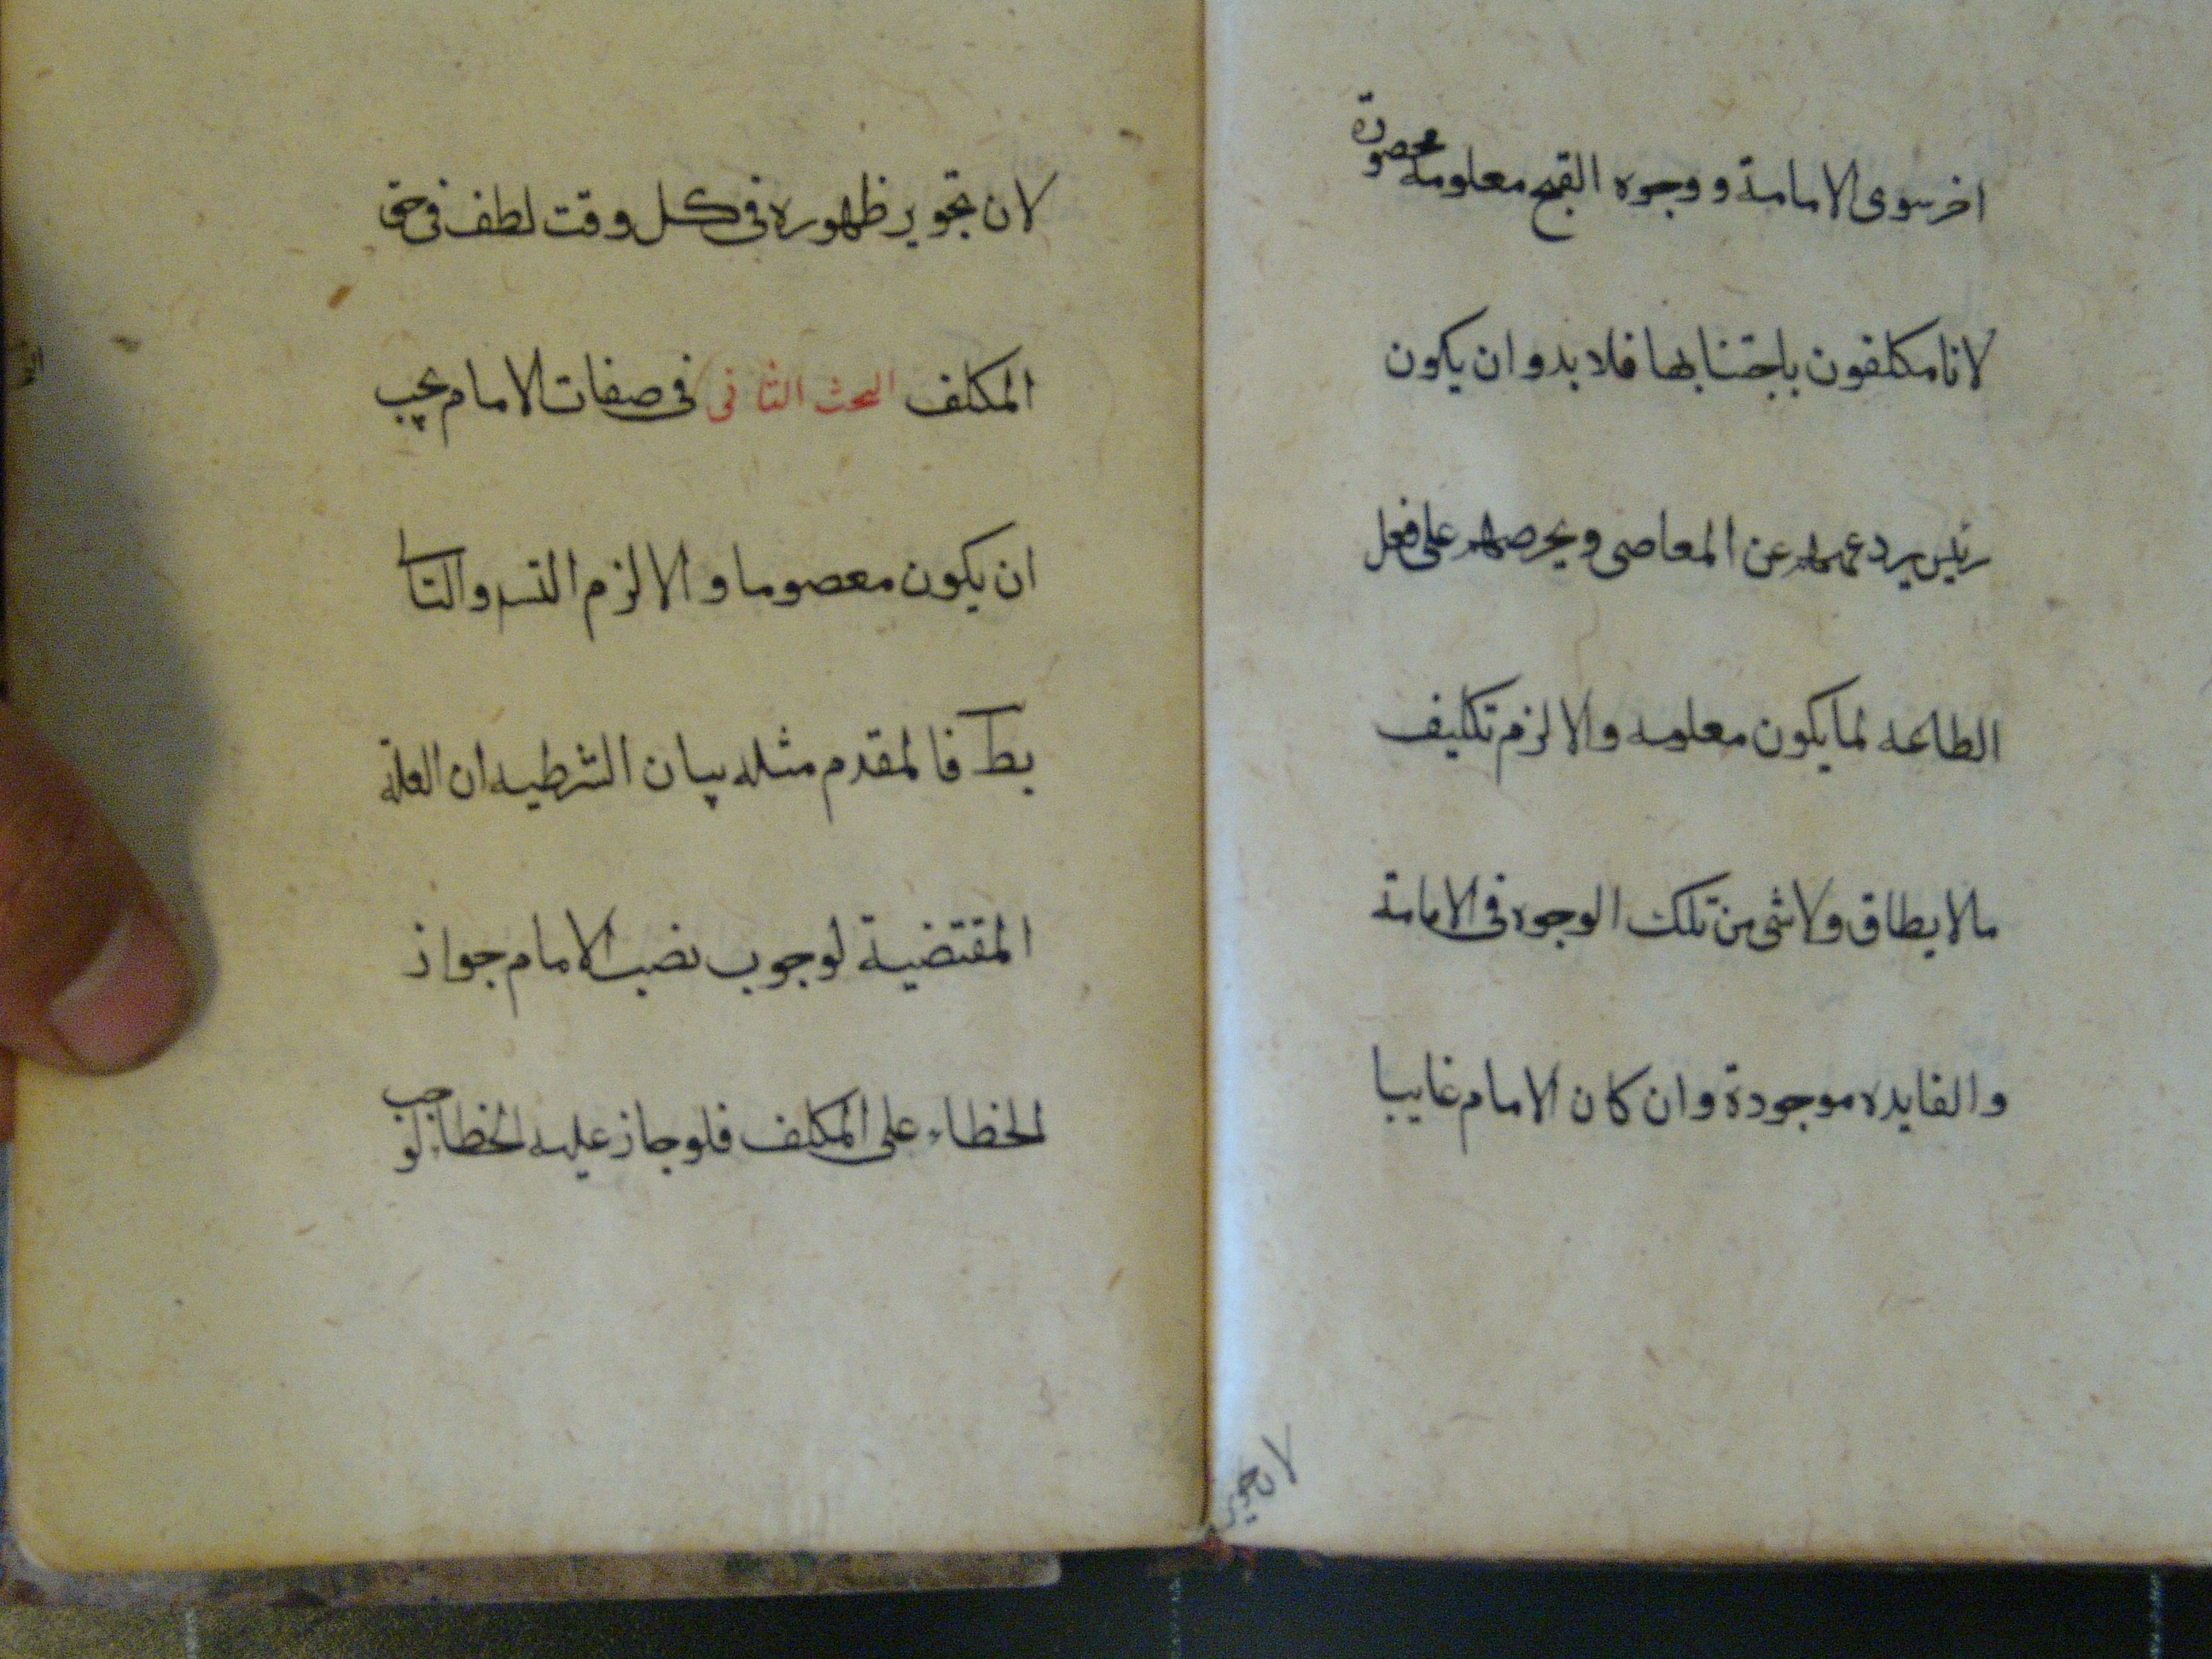 اخر سوى الامامة ووجوه القبح معلومة محصورة
لانا مكلفون باجتنابها فلا بد وان يكون
رئيس يردعهم عن المعاصى ويحرصهم على فعل
الطاعه لما يكون معلومه والا لزم تكليف
ما لا يطاق ولا شى من تلك الوجوه فى الامامة
والفايده موجودة وان كان الامام غايبا
لان تجويز ظهوره فى كل وقت لطف فى حق
المكلف البحث الثانى فى صفات الامام يجب
ان يكون معصوما والا لزم التسـ والتا
بط فالمقدم مثله بيان الشرطيه ان العلة
المقتضية لوجوب نصب الامام جواز
الخطاء على المكلف فلو جاز عليه الخطاء لوجب